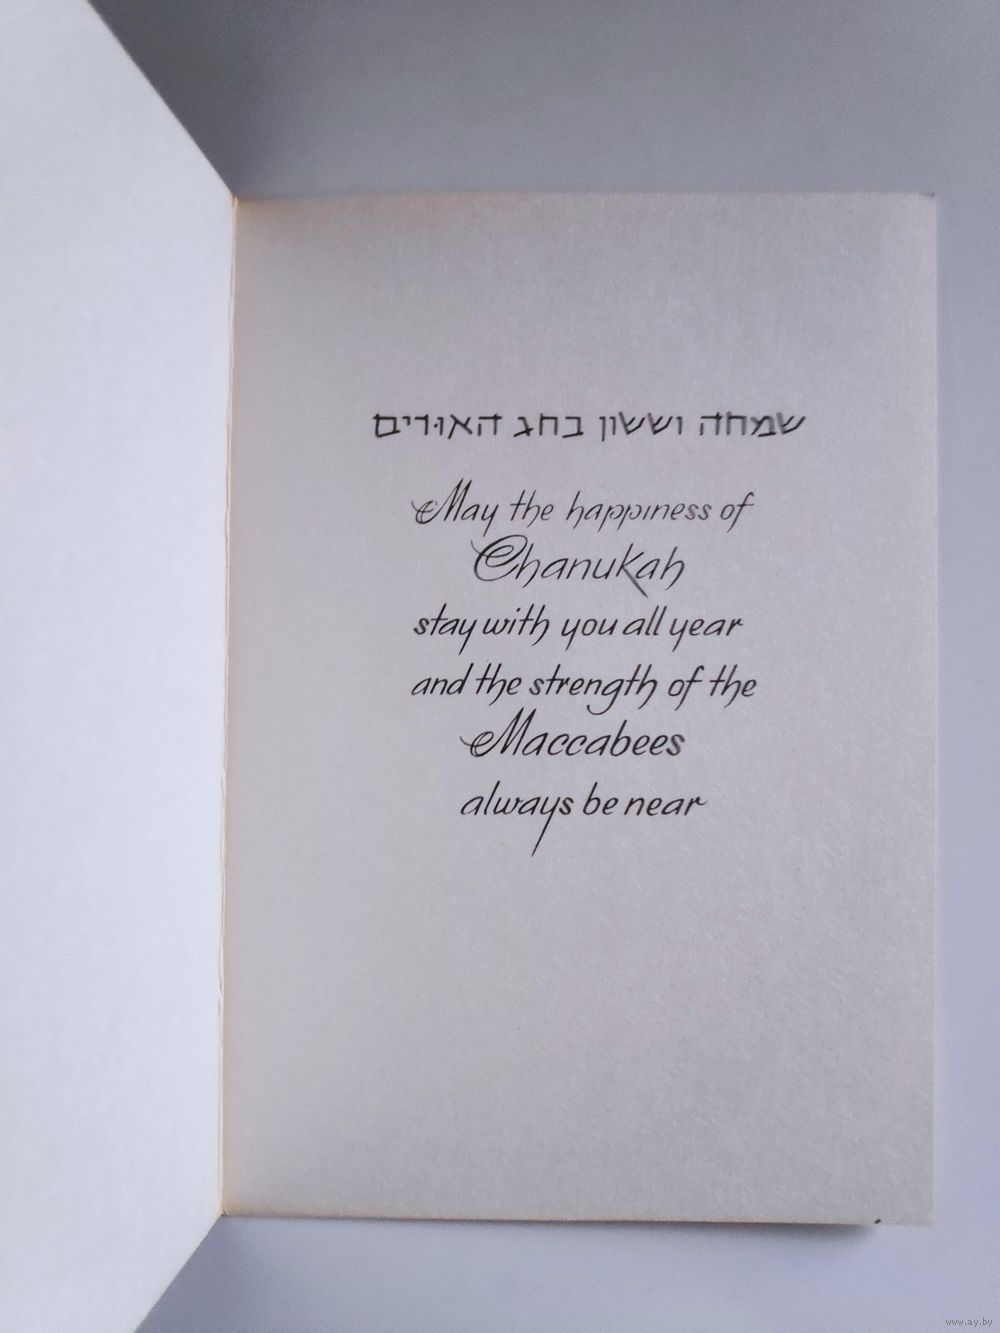 שמחה וששון בחג האורים
May the happiness of
Chanukah
stay with you all year
and the strength of the
Maccabees
always be near
www.ay.by